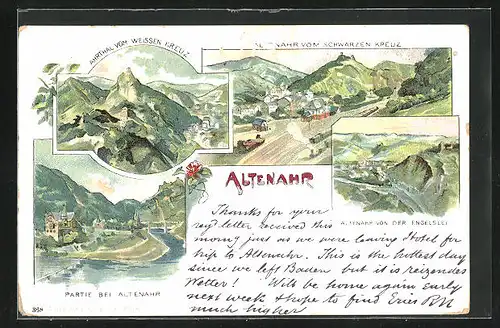 AHRTHAL VOM WEISSEN KREUZ
ALTENAHR VOM SCHWARZEN KREUZ
ALTENAHR
ALTENAHR VON DER ENGELSLEI
PARTIE BEI ALTENAHR
Thanks for your
reg'd letter received this
morng just as we were leaving Hotel for
trip to Altenahr. This is the hottest day
since we left Baden but it is reizendes
Wetter! Will be home again early
next week & hope to find Eries
much higher